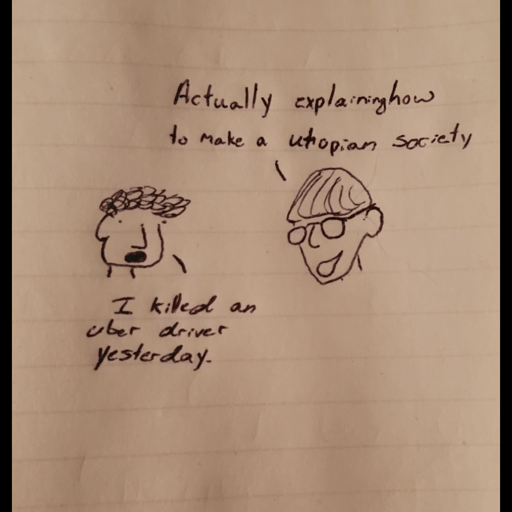 Actually explaininghow
to make a utiopian society
I killed an
uber driver
yesterday.